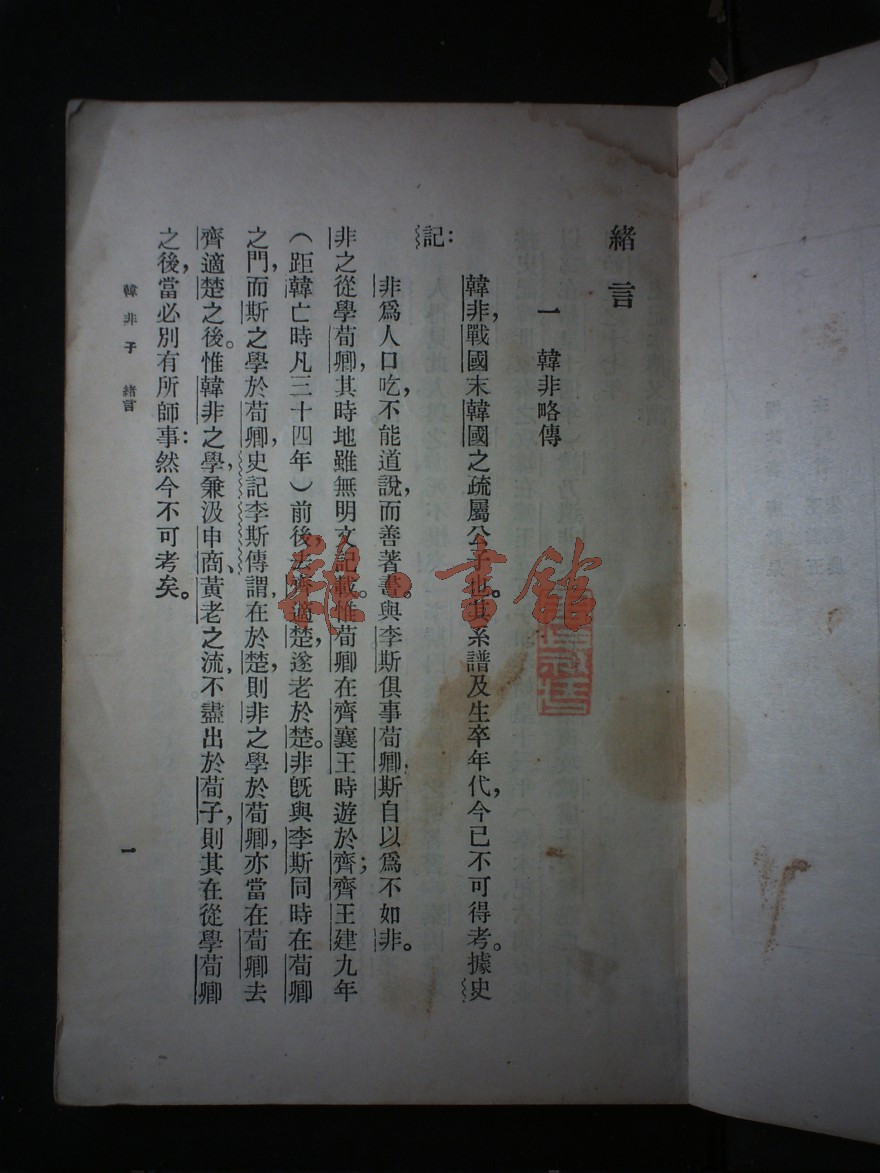 緒言
一 韓非略傳
韓非，戰國末韓國之疏屬公子也。其系譜及生卒年代，今已不可得考。據史
記：
非爲人口吃，不能道說，而善著書。與李斯俱事荀卿，斯自以爲不如非。
非之從學荀卿，其時地雖無明文記載。惟荀卿在齊襄王時遊於齊；齊王建九年
（距韓亡時凡三十四年）前後，去齊適楚，遂老於楚。非旣與李斯同時在荀卿
之門，而斯之學於荀卿，史記李斯傳謂，在於楚，則非之學於荀卿，亦當在荀卿去
齊適楚之後。惟韓非之學，兼汲申商、黃老之流，不盡出於荀子，則其在從學荀卿
之後，當必別有所師事：然今不可考矣。
韓非子 緒言
一
雜·書館